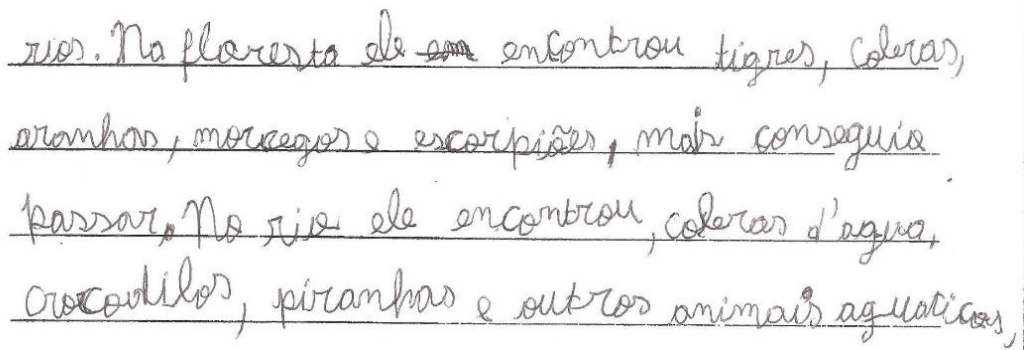 rios. Na floresta ele encontrou tigres, cobras,
aranhas, morcegos e escorpiões, mais conseguia
passar. No rio ele encontrou, cobras d'agua,
crocodilos, piranhas e outros animais aguaticos,